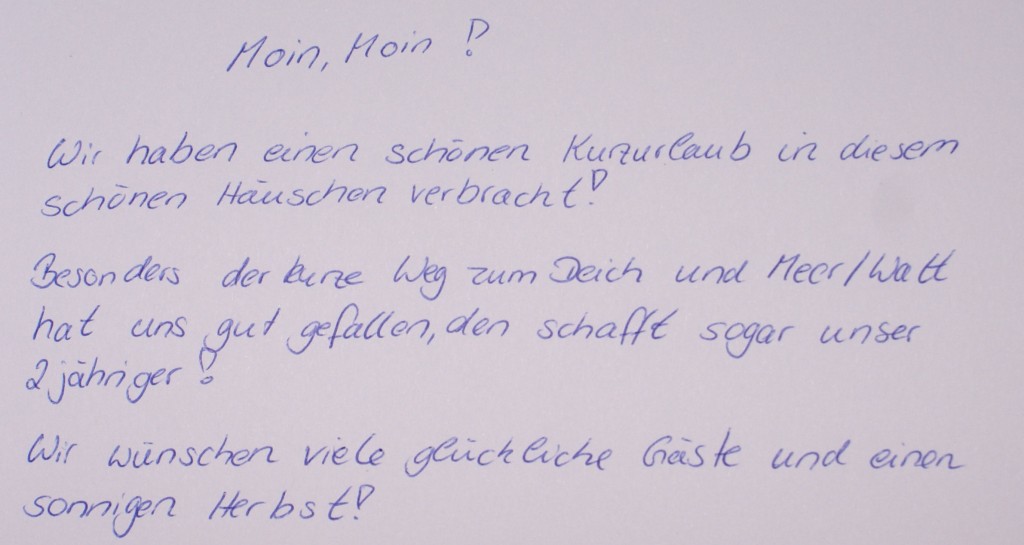 Moin, Moin!
Wir haben einen schönen Kurzurlaub in diesem
schönen Häuschen verbracht!
Besonders der kurze Weg zum Deich und Meer/Watt
hat uns gut gefallen, den schafft sogar unser
2jähriger!
Wir wünschen viele glückliche Gäste und einen
sonnigen Herbst!